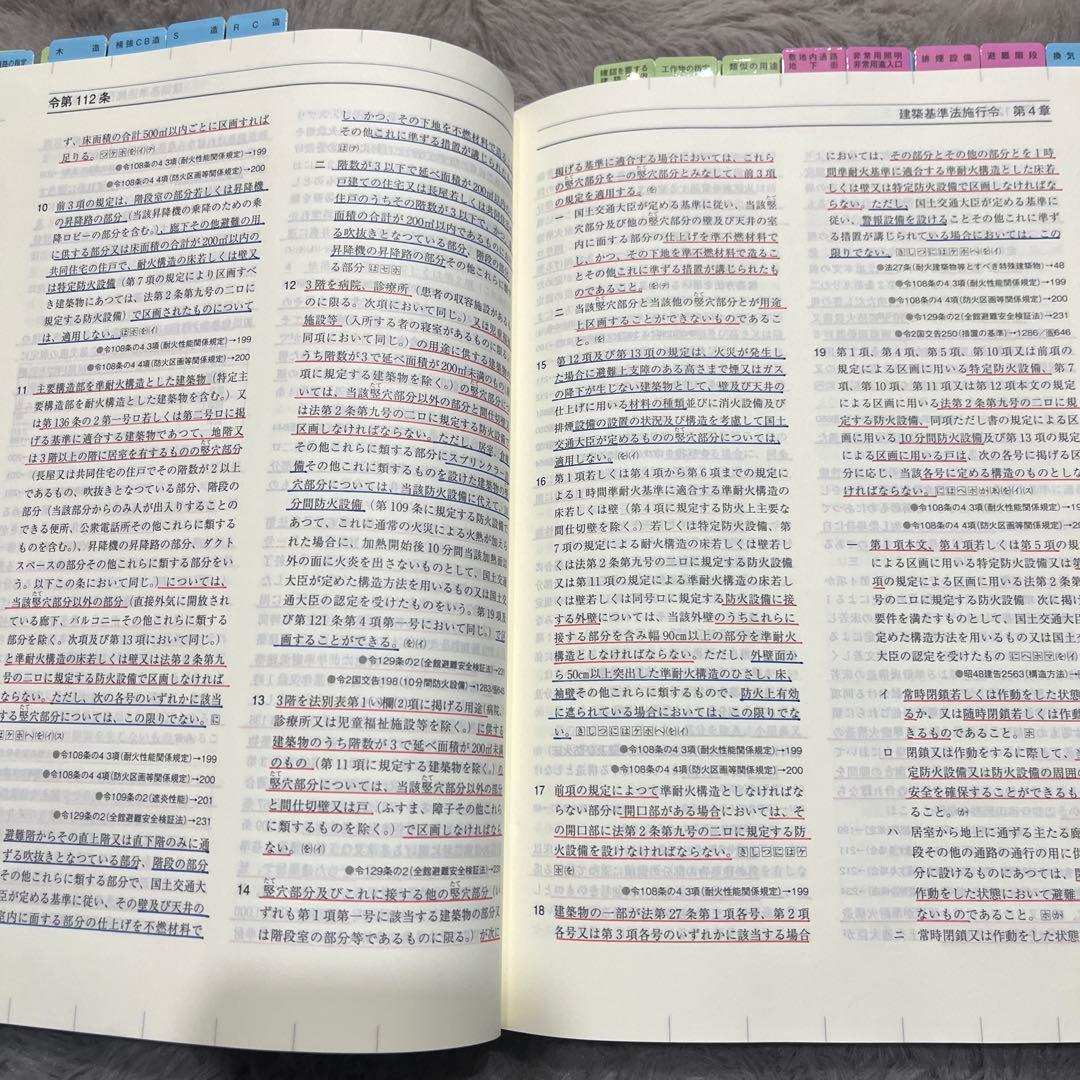 路の指定
木造
補強CB造
S造
RC造
工作物の指定
類似の用途
敷地内通路
地下街
非常用照明
非常用進入口
排煙設備
避難階段
換気
令第112条
ず、床面積の合計500㎡以内ごとに区画すれば
足りる。
●令108条の4 3項(耐火性能関係規定)→199
●令108条の4 4項(防火区画等関係規定)→200
10 前3項の規定は、階段室の部分若しくは昇降機
の昇降路の部分(当該昇降機の乗降のための乗
降ロビーの部分を含む。)、廊下その他避難の用
に供する部分又は床面積の合計が200㎡以内の
共同住宅の住戸で、耐火構造の床若しくは壁又
は特定防火設備(第7項の規定により区画すべ
き建築物にあつては、法第2条第九号の二ロに
規定する防火設備)で区画されたものについて
は、適用しない。
●令108条の4 3項(耐火性能関係規定)→199
●令108条の4 4項(防火区画等関係規定)→200
11 主要構造部を準耐火構造とした建築物(特定主
要構造部を耐火構造とした建築物を含む。)又
は第136条の2第一号ロ若しくは第二号ロに掲
げる基準に適合する建築物であつて、地階又
は3階以上の階に居室を有するものの竪穴部分
(長屋又は共同住宅の住戸でその階数が2以上
であるもの、吹抜きとなつている部分、階段の
部分(当該部分からのみ人が出入りすることの
できる便所、公衆電話所その他これらに類する
ものを含む。)、昇降機の昇降路の部分、ダクト
スペースの部分その他これらに類する部分をい
う。以下この条において同じ。)については、
当該竪穴部分以外の部分(直接外気に開放され
ている廊下、バルコニーその他これらに類する
部分を除く。次項及び第13項において同じ。)
と準耐火構造の床若しくは壁又は法第2条第九
号の二ロに規定する防火設備で区画しなければ
ならない。ただし、次の各号のいずれかに該当
する竪穴部分については、この限りでない。
●令108条の4 3項(耐火性能関係規定)→199
●令108条の4 4項(防火区画等関係規定)→200
●令109条の2(遮炎性能)→201
●令129条の2(全館避難安全検証法)→231
避難階からその直上階又は直下階のみに通
ずる吹抜きとなつている部分、階段の部分
その他これらに類する部分で、国土交通大
臣が定める基準に従い、その壁及び天井の
室内に面する部分の仕上げを不燃材料で
し、かつ、その下地を不燃材料で造る
その他これに準ずる措置が講じられ
二 階数が3以下で延べ面積が200㎡以
戸建ての住宅又は長屋若しくは共同住
住戸のうちその階数が3以下で、かつ、
面積の合計が200㎡以内であるものに
る吹抜きとなつている部分、階段の部分
昇降機の昇降路の部分その他これらに
る部分
12 3階を病院、診療所(患者の収容施設がある
のに限る。次項において同じ。)又は児童福祉
施設等(入所する者の寝室があるものに限る。
同項において同じ。)の用途に供する建築物の
うち階数が3で延べ面積が200㎡未満のもの(前
項に規定する建築物を除く。)の竪穴部分に
は、当該竪穴部分以外の部分と間仕切壁又
は法第2条第九号の二ロに規定する防火設備で
区画しなければならない。ただし、居室、倉
その他これらに類する部分にスプリンクラー
備その他これに類するものを設けた建築物の竪
穴部分については、当該防火設備に代えて、
分間防火設備(第109条に規定する防火設備で
あつて、これに通常の火災による火熱が加えら
れた場合に、加熱開始後10分間当該加熱面以
外の面に火炎を出さないものとして、国土交通
大臣が定めた構造方法を用いるもの又は国土交
通大臣の認定を受けたものをいう。第19項
び第121条第4項第一号において同じ。)で区
画することができる。
●令129条の2(全館避難安全検証法)→231
●令2国交告198(10分間防火設備)→1283
13 3階を法別表第1い欄(2)項に掲げる用途(病院、
診療所又は児童福祉施設等を除く。)に供する
建築物のうち階数が3で延べ面積が200㎡未満
のもの(第11項に規定する建築物を除く。)の
竪穴部分については、当該竪穴部分以外の部分
と間仕切壁又は戸(ふすま、障子その他これら
に類するものを除く。)で区画しなければなら
ない。
●令129条の2(全館避難安全検証法)→231
14 竪穴部分及びこれに接する他の竪穴部分(い
ずれも第1項第一号に該当する建築物の部分又
は階段室の部分等であるものに限る。)が次に
建築基準法施行令 第4章
掲げる基準に適合する場合においては、これら
の竪穴部分を一の竪穴部分とみなして、前3項
の規定を適用する。
一 国土交通大臣が定める基準に従い、当該竪
穴部分及び他の竪穴部分の壁及び天井の室
内に面する部分の仕上げを準不燃材料で
し、かつ、その下地を準不燃材料で造るこ
とその他これに準ずる措置が講じられたも
のであること。
二 当該竪穴部分と当該他の竪穴部分とが用途
上区画することができないものであるこ
と。
15 第12項及び第13項の規定は、火災が発生し
た場合に避難上支障のある高さまで煙又はガス
の降下が生じない建築物として、壁及び天井の
仕上げに用いる材料の種類並びに消火設備及び
排煙設備の設置の状況及び構造を考慮して国土
交通大臣が定めるものの竪穴部分については、
適用しない。
16 第1項若しくは第4項から第6項までの規定に
よる1時間準耐火基準に適合する準耐火構造の
床若しくは壁(第4項に規定する防火上主要な
間仕切壁を除く。)若しくは特定防火設備、第
7項の規定による耐火構造の床若しくは壁若し
くは法第2条第九号の二ロに規定する防火設備
又は第11項の規定による準耐火構造の床若し
くは壁若しくは同号ロに規定する防火設備に接
する外壁については、当該外壁のうちこれらに
接する部分を含み幅90cm以上の部分を準耐火
構造としなければならない。ただし、外壁面か
ら50cm以上突出した準耐火構造のひさし、床、
袖壁その他これらに類するもので、防火上有効
に遮られている場合においては、この限りでな
い。
●令108条の4 3項(耐火性能関係規定)→199
●令108条の4 4項(防火区画等関係規定)→200
17 前項の規定によつて準耐火構造としなければな
らない部分に開口部がある場合においては、そ
の開口部に法第2条第九号の二ロに規定する防
火設備を設けなければならない。
●令108条の4 3項(耐火性能関係規定)→199
18 建築物の一部が法第27条第1項各号、第2項
各号又は第3項各号のいずれかに該当する場合
においては、その部分とその他の部分とを1時
間準耐火基準に適合する準耐火構造とした床若
しくは壁又は特定防火設備で区画しなければな
らない。ただし、国土交通大臣が定める基準に
従い、警報設備を設けることその他これに準ず
る措置が講じられている場合においては、この
限りでない。
●法27条(耐火建築物等とすべき特殊建築物)→48
●令108条の4 3項(耐火性能関係規定)→199
●令108条の4 4項(防火区画等関係規定)→200
●令129条の2(全館避難安全検証法)→231
●令2国交告250(措置の基準)→1286/面646
19 第1項、第4項、第5項、第10項又は前項の
規定による区画に用いる特定防火設備、第7
項、第10項、第11項又は第12項本文の規定
による区画に用いる法第2条第九号の二ロに規
定する防火設備、同項ただし書の規定による区
画に用いる10分間防火設備及び第13項の規定
による区画に用いる戸は、次の各号に掲げる区
分に応じ、当該各号に定める構造のものとしな
ければならない。
●令108条の4 3項(耐火性能関係規定)
●令108条の4 4項(防火区画等関係規定)
一 第1項本文、第4項若しくは第5項の規
定による区画に用いる特定防火設備又は第
項の規定による区画に用いる法第2条第九
号の二ロに規定する防火設備 次に掲げ
要件を満たすものとして、国土交通大臣
定めた構造方法を用いるもの又は国土交
大臣の認定を受けたもの
●昭48建告2563(構造方法)
常時閉鎖若しくは作動をした状態
るか、又は随時閉鎖若しくは作動
きるものであること。
ロ 閉鎖又は作動をするに際して、
定防火設備又は防火設備の周囲の
安全を確保することができるもの
ること。
ハ 居室から地上に通ずる主たる廊
段その他の通路の通行の用に供
分に設けるものにあつては、閉
作動をした状態において避難上
ないものであること。
ニ 常時閉鎖又は作動をした状態